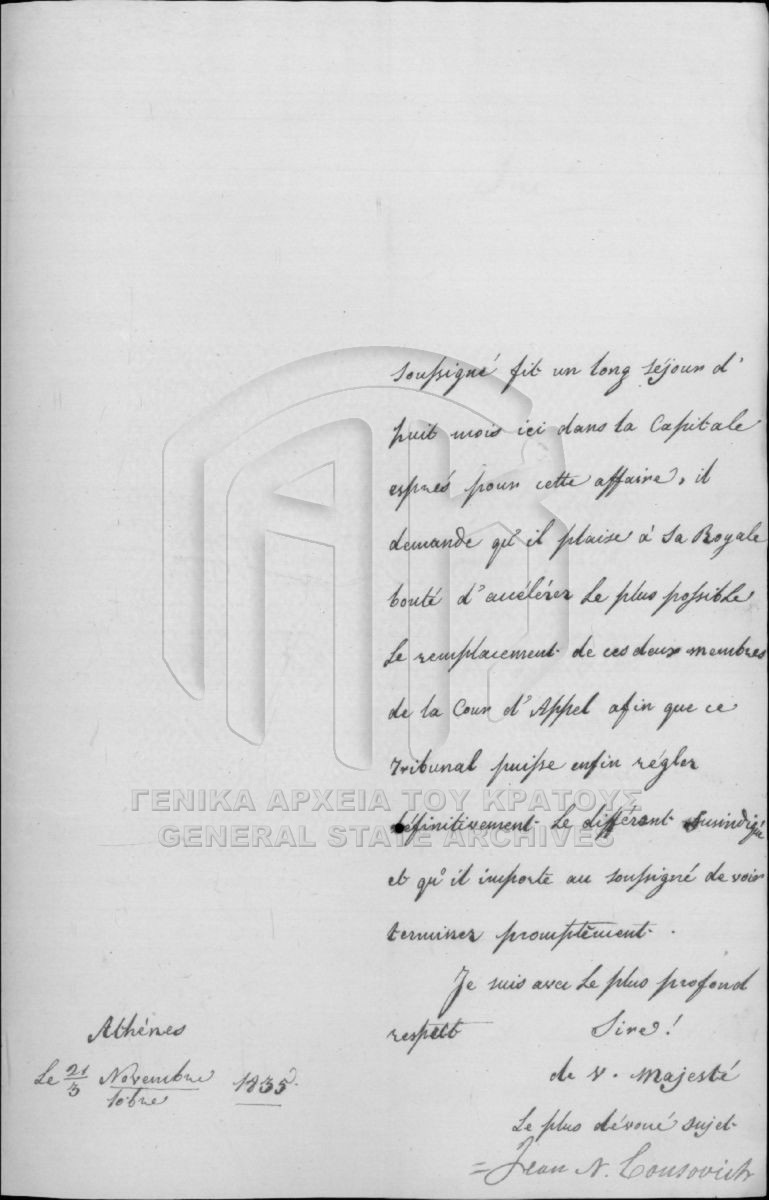 soussigné fit un long séjour d'
huit mois ici dans la Capitale
esprés pour cette affaire, il
demande qu'il plaise à Sa Royale
bonté d'accélérer le plus possible
le remplacement de ces deux membres
de la Cour d'Appel afin que ce
Tribunal puisse enfin régler
définitivement le différent susindiqué
et qu'il importe au soussigné de voir
terminer promptement.
Je suis avec le plus profond
respect Sire!
de V. Majesté
Le plus dévoué sujet
Jean N.
Athénes
Le 21/3 Novembre/10bre 1835
ΓΕΝΙΚΑ ΑΡΧΕΙΑ ΤΟΥ ΚΡΑΤΟΥΣ
GENERAL STATE ARCHIVES